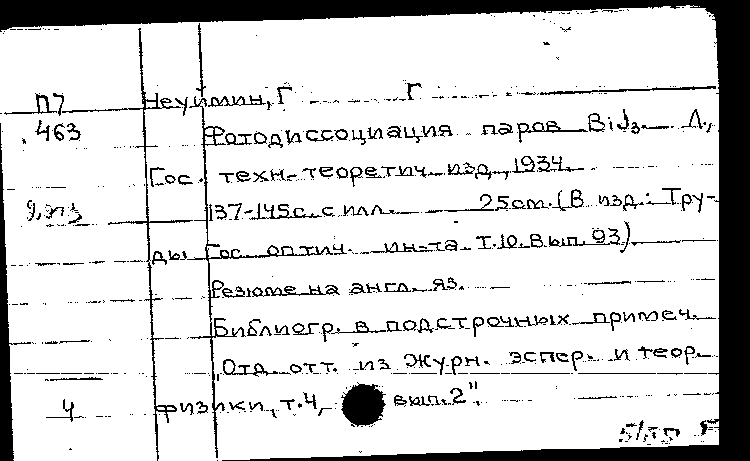 П7 Неуймин, Г Г
463 Фотодиссоциация паров BiJ3. Л.,
Гос. техн-теоретич. изд., 1934.
137-145с. с илл. 25см. (В изд.: Тру-
ды Гос. оптич. ин-та. Т.10. Вып. 93).
Резюме на англ. яз.
Библиогр. в подстрочных примеч.
"Отд. отт. из Журн. эспер. и теор.
4 физики, т.4, вып.2".